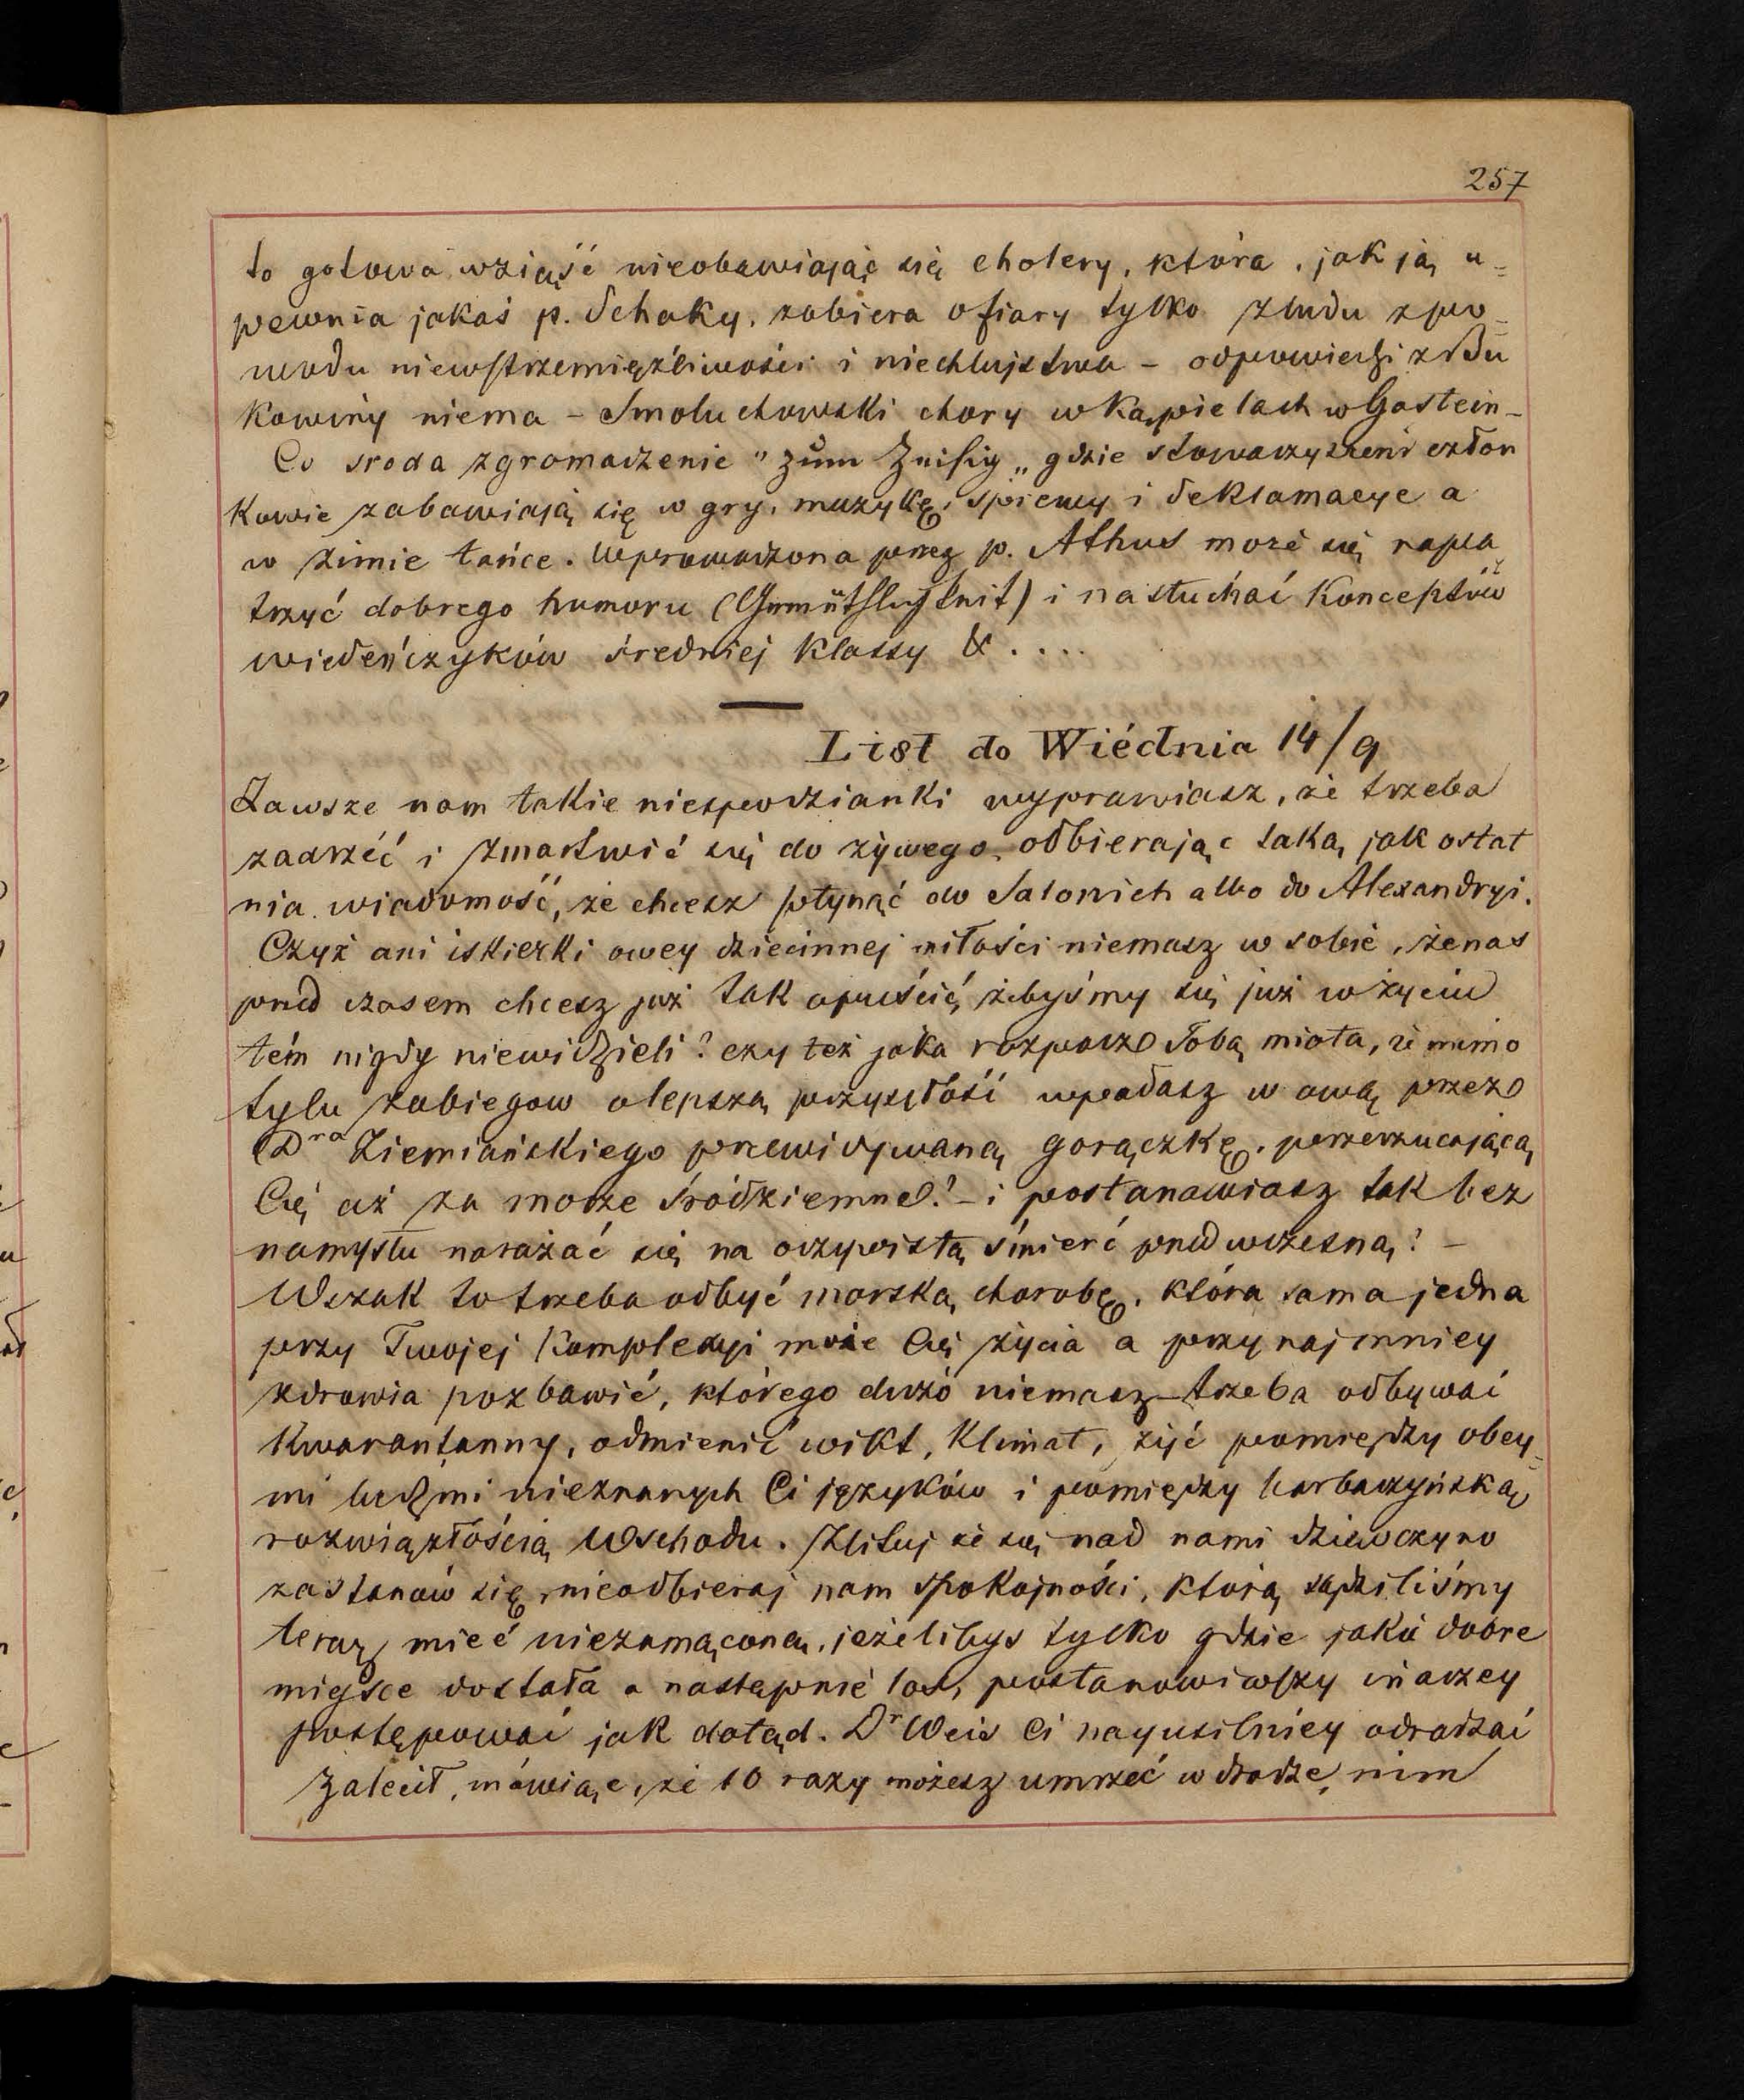 257
to gotowa wziąść nieobawiając się cholery, która, jak ją u=
pewnia jakaś p. Schaky, zabiera ofiary tylko z ludu z po=
wodu niewstrzemięźliwości i niechlujstwa – odpowiedzi z Bu
kowiny niema – Smoluchowski chory w kąpielach w Gastein –
Co sroda zgromadzenie "zum " gdzie stowarzyszeni człon
kowie zabawiają się w gry, muzykę, śpiewy i deklamacye a
w zimie tańce. Wprowadzona przez p. Athus może się napa
trzyć dobrego humoru (Gemüthlichkeit) i nasłuchać konceptów
wiedeńczyków średniej klassy & ....
List do Wiédnia 14/9
Zawsze nam takie niespodzianki wyprawiasz, że trzeba
zadrzéć i zmartwić się do żywego, odbierając taką jak ostat
nia wiadomość, że chcesz płynąć do Salonich albo do Alexandryi.
Czyż ani iskierki owey dziecinnej miłości niemasz w sobie, że nas
przed czasem chcesz już tak opuścić, żebyśmy się już w życiu
tém nigdy niewidzieli? czy też jaka rozpacz Tobą miota, że mimo
tylu zabiegow o lepszą przyszłość wpadasz w ową przez
Dra Ziemiańskiego przewidywaną gorączkę, przerzucającą
Cię aż za morze śródziemne? – i postanawiasz tak bez
namysłu narażać się na oczywistą śmierć przedwczesną? –
Wszak to trzeba odbyć morską chorobę, która sama jedna
przy Twojej komplexyi może Cię życia a przynajmniey
zdrowia pozbawić, którego dużo niemasz – trzeba odbywać
kwarantanny, odmienić wikt, klimat, żyć pomiędzy obcy=
mi ludźmi nieznanych Ci języków i pomiędzy barbarzyńską
rozwiązłością Wschodu. Zlituj że się nad nami dziewczyno
zastanów się, nieodbieraj nam spokojności, którą sądziliśmy
teraz mieć niezamąconą, jeżelibyś tylko gdzie jakie dobre
mieysce dostała a następnie los, postanowiwszy inaczey
postępować jak dotąd. Dr Weis Ci nayusilniey odradzać
zalecił, mówiąc, że 10 razy możesz umrzeć w drodze, nim